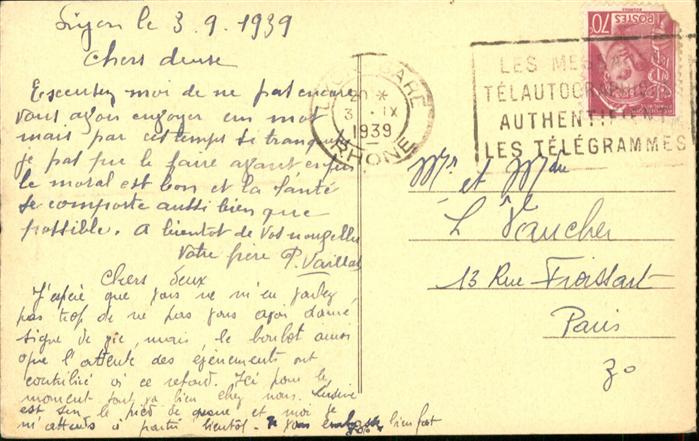 Lyon le 3.9.1939
Chers deux
Excusez moi de ne pas encore
vous avoir envoyer un mot
mais par ces temps si tranquil
je pas pu le faire avant enfin
le moral est bon et la santé
se comporte aussi bien que
possible. A bientot de vos nouvelles
Votre frère P. Vaillat
Chers deux
J'espère que vous ne m'en voulez
pas trop de ne pas vous avoir donné
signe de vie, mais, le boulot ainsi
que l'attente des évènements ont
contribué à ce retard. Ici pour le
moment tout va bien chez nous.
est sur le pied de guerre et moi je
m'attends à partir bientot. je vous embrasse bien fort
70
POSTES
LYON GARE
20 *
3 - IX
1939
RHONE
LES MESSAGES
TÉLAUTOGRAPHIQUES
AUTHENTIFIENT
LES TÉLÉGRAMMES
Mr et Mme
L Vaucher
13 Rue Froissart
Paris
30